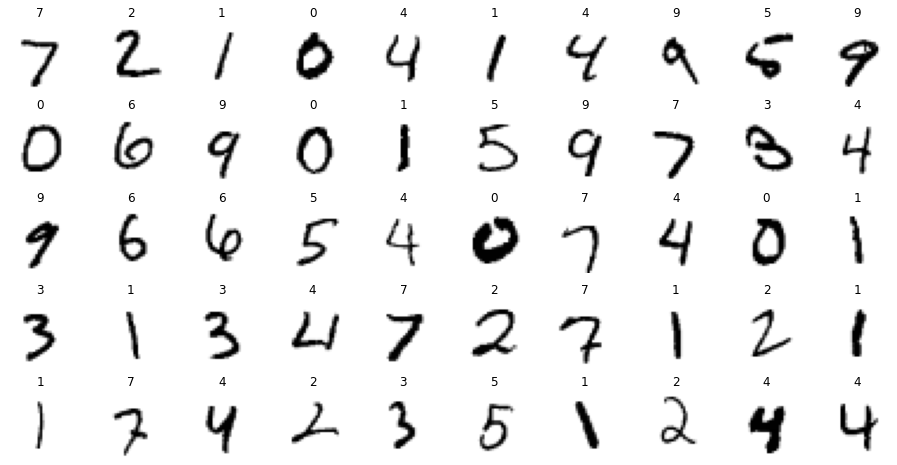 7 2 1 0 4 1 4 9 5 9
7 2 1 0 4 1 4 9 5 9
0 6 9 0 1 5 9 7 3 4
0 6 9 0 1 5 9 7 3 4
9 6 6 5 4 0 7 4 0 1
9 6 6 5 4 0 7 4 0 1
3 1 3 4 7 2 7 1 2 1
3 1 3 4 7 2 7 1 2 1
1 7 4 2 3 5 1 2 4 4
1 7 4 2 3 5 1 2 4 4